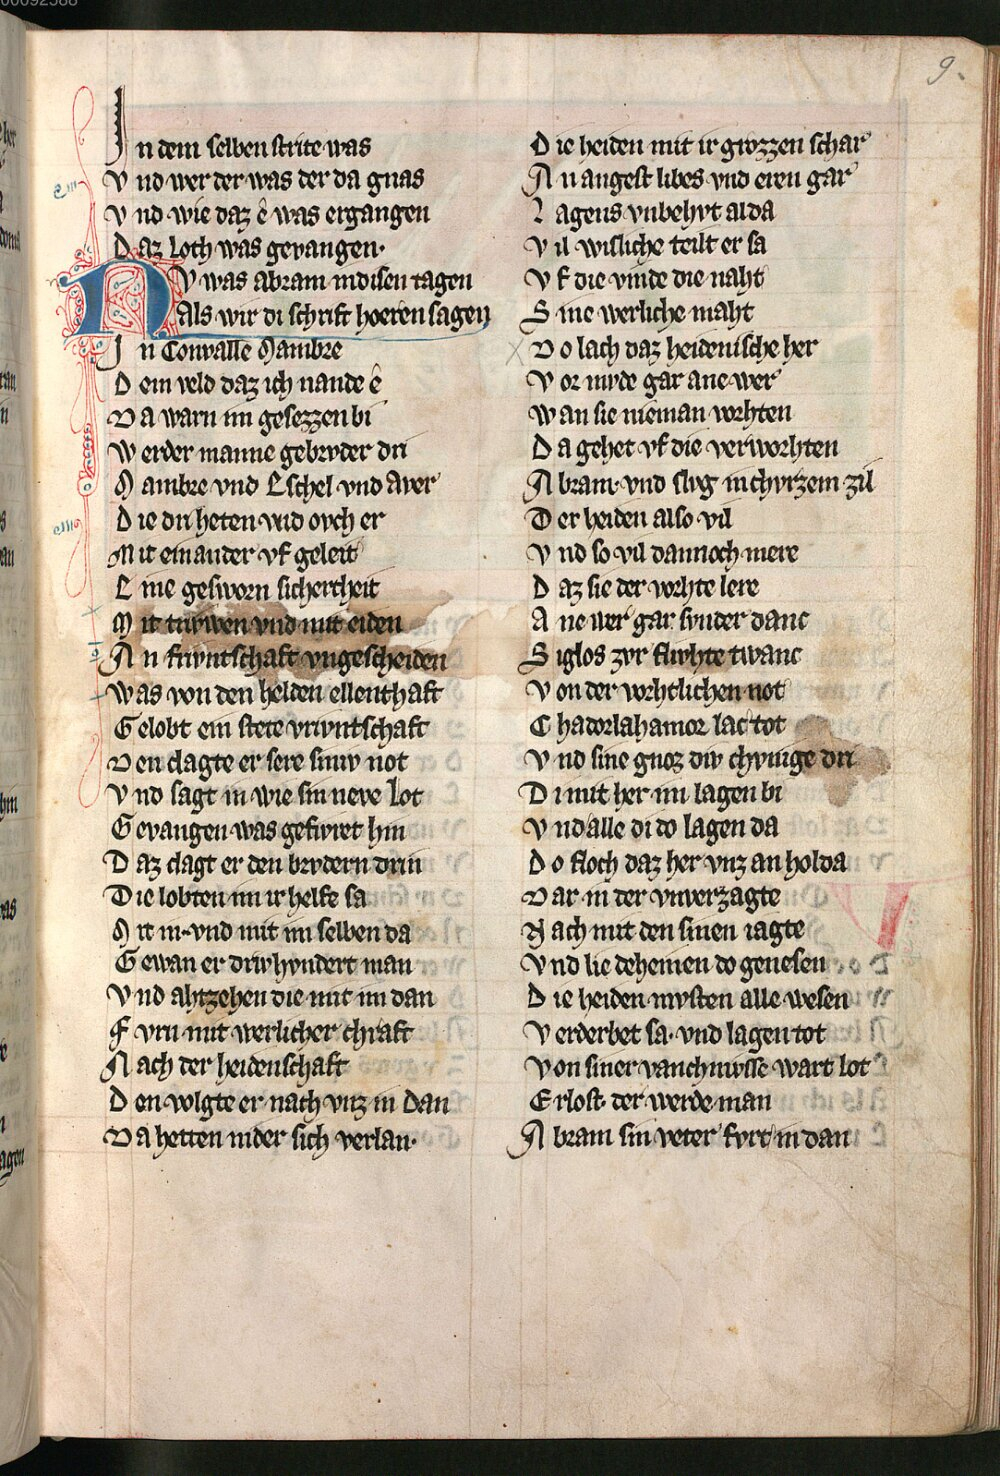 9.
In dem selben strite was
Vnd wer der was der da gnas
Vnd wie daz ê was ergangen
Daz Loth was gevangen·
NV was Abram in disen tagen
Als wir di schrift hoeren sagen
In Convalle Mambre
Dem veld daz ich nande ê
Da warn im gesezzen bi
Werder manne gebrvder dri
Mambre vnd Eschel vnd Aner
Die dri heten vnd ovch er
Mit einander vf geleit
Eine gesworn sicherheit
Mit triwen vnd mit eiden
An friwntschaft vngescheiden
Was von den helden ellenthaft
Gelobt ein stete vriwntschaft
Den clagte er sere siniv not
Vnd sagt in wie sin neve Lot
Gevangen was gefwret hin
Daz clagt er den brvdern drin
Die lobten im ir helfe sa
Mit in·vnd mit im selben da
Gewan er driwhvndert man
Vnd ahtzehen die mit im dan
Fvrn mit werlicher chraft
Nach der heidenschaft
Den volgte er nach vnz in Dan
Da hetten nider sich verlan·
Die heiden mit ir grozzen schar
An angest libes vnd eren gar
Lagens vnbehvt alda
Vil wisliche teilt er sa
Vf die vinde die naht
Sine werliche maht
Do lach daz heidenische her
Vor mvde gar ane wer
Wan sie nieman vorhten
Da gehet vf die verworhten
Abram·vnd slvg in chvrzem zil
Der heiden also vil
Vnd so vil dannoch mere
Daz sie der vorhte lere
Ane wer gar svnder danc
Siglos zvr flvhte twanc
Von der vorhtlichen not
Chadorlahamor lac tot
Vnd sine gnoz div chvnige dri
Di mit her im lagen bi
Vnd alle di do lagen da
Do floch daz her vnz an Hoba
Dar in der vnverzagte
Nach mit den sinen iagte
Vnd lie deheinen do genesen
Die heiden mvsten alle wesen
Verderbet sa·vnd lagen tot
Von siner vanchnvsse wart Lot
Erlost·der werde man
Abram sin veter fvrt in dan